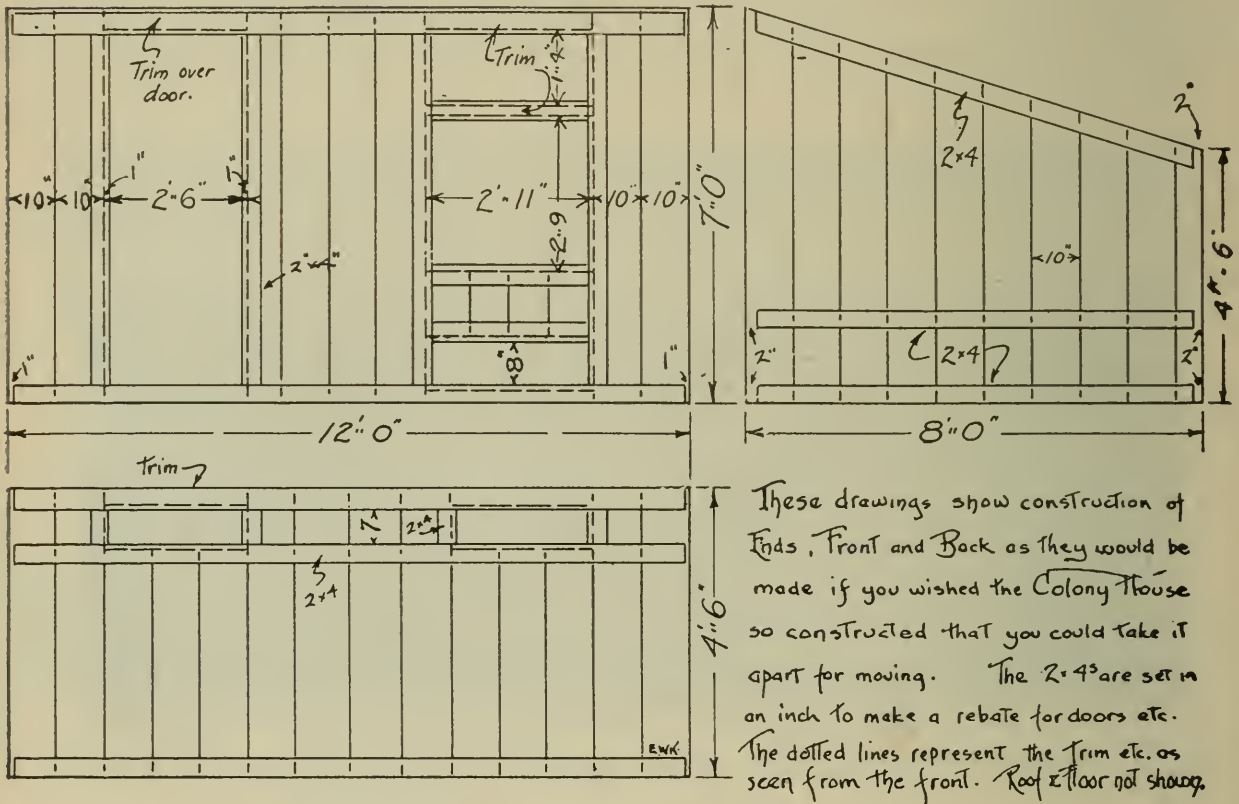 Trim over
door.
Trim
1'4"
1"
1"
10"
10"
2'-6"
2'-11"
10"
10"
7'0"
2'-9
2"x4"
8"
1"
1"
12'-0"
2"
2x4
10"
4ft-6"
2"
2x4
2"
8'-0"
trim
7"
2x4
2x4
4'-6"
E.W.K.
These drawings show construction of
Ends, Front and Back as they would be
made if you wished the Colony House
so constructed that you could take it
apart for moving. The 2x4s are set in
an inch to make a rebate for doors etc.
The dotted lines represent the trim etc. as
seen from the front. Roof & Floor not shown.